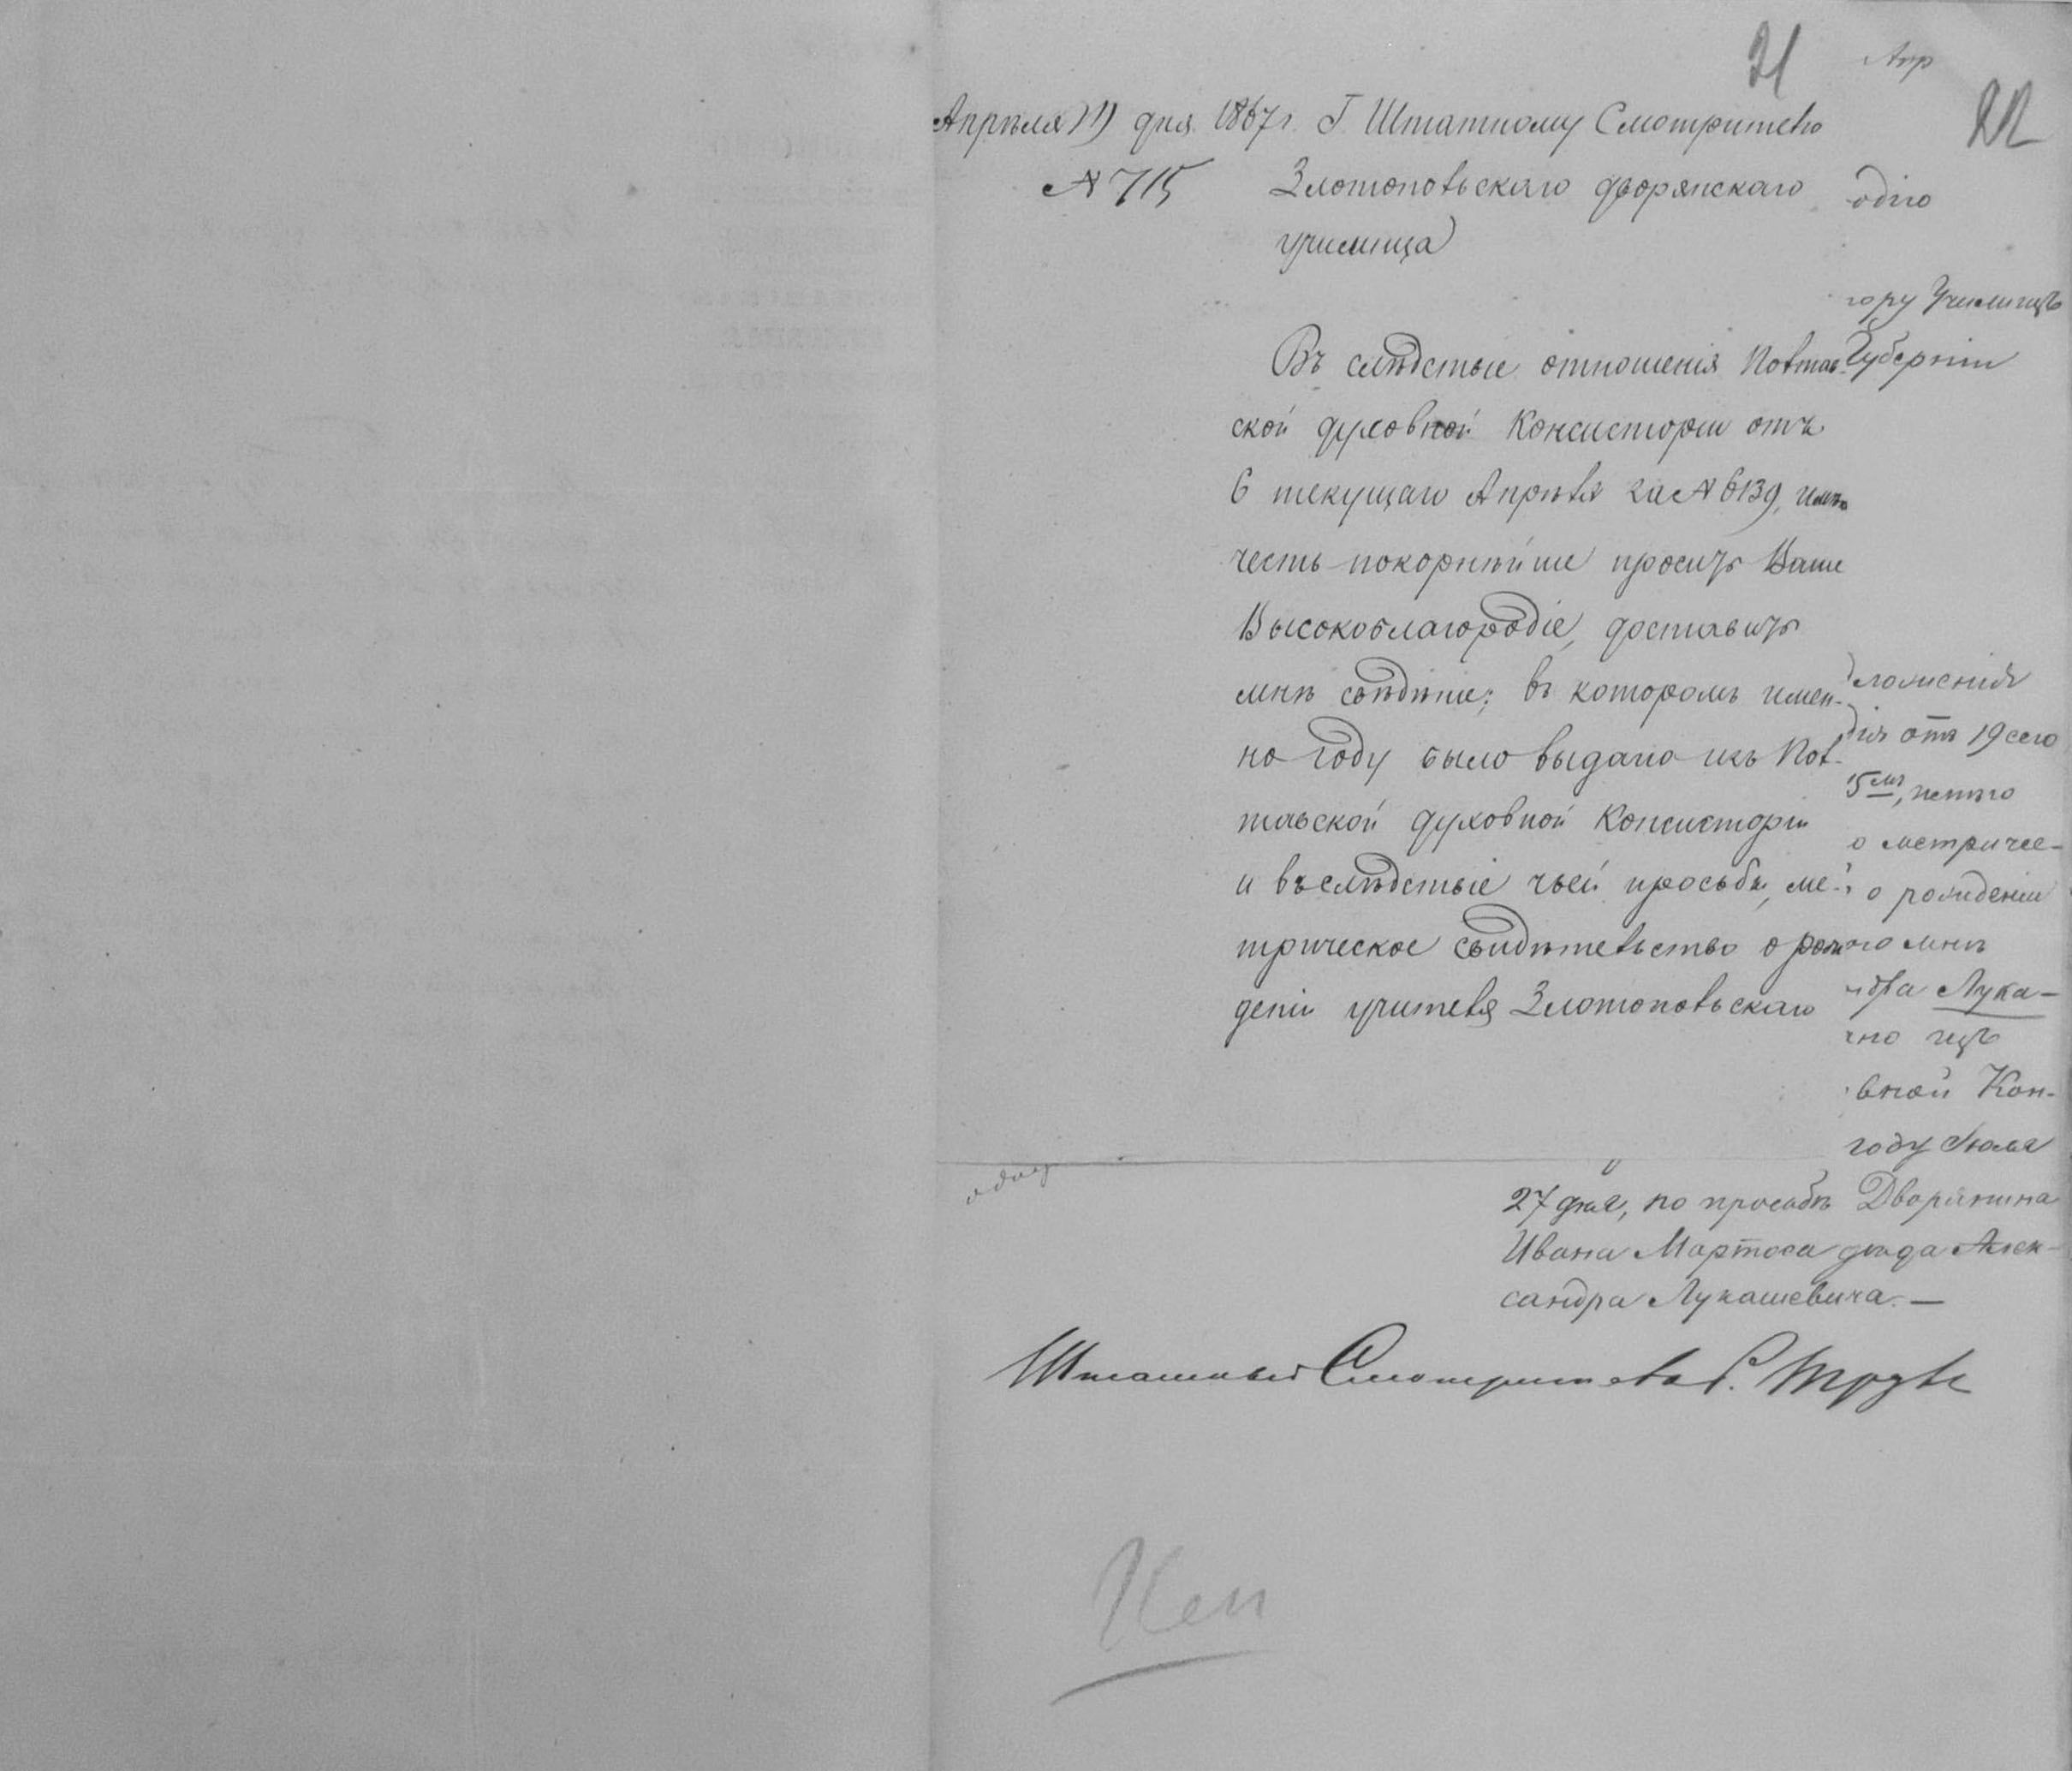 21
Апр
22
Апрѣля 11 дня 1867 г. Г. Штатному Смотрителю
№ 715 Златопольскаго дворянскаго
училища
Въ слѣдствіе отношенія Полтав-
ской духовной Консисторіи отъ
6 текущаго Апрѣля за № 6139, имѣю
честь покорнѣйше просить Ваше
Высокоблагородіе, доставить
мнѣ свѣдѣніе; въ которомъ имен-
но году было выдано изъ Пол-
тавской духовной Консисторіи
и въ слѣдствіе чьей просьбы, ме-
трическое свидѣтельство о рож
деніи учителя Златопольскаго
одію
тору Училищъ
Губерніи
ложенія
дія отъ 19 сего
15
о метричес-
о рожденіи
ого мнѣ
ндра Лука-
но изъ
вной Кон-
году Іюля
27 дня, по просьбѣ Дворянина
Ивана Мартоса дѣда Алек-
сандра Лукашевича. —
Штатный Смотритель